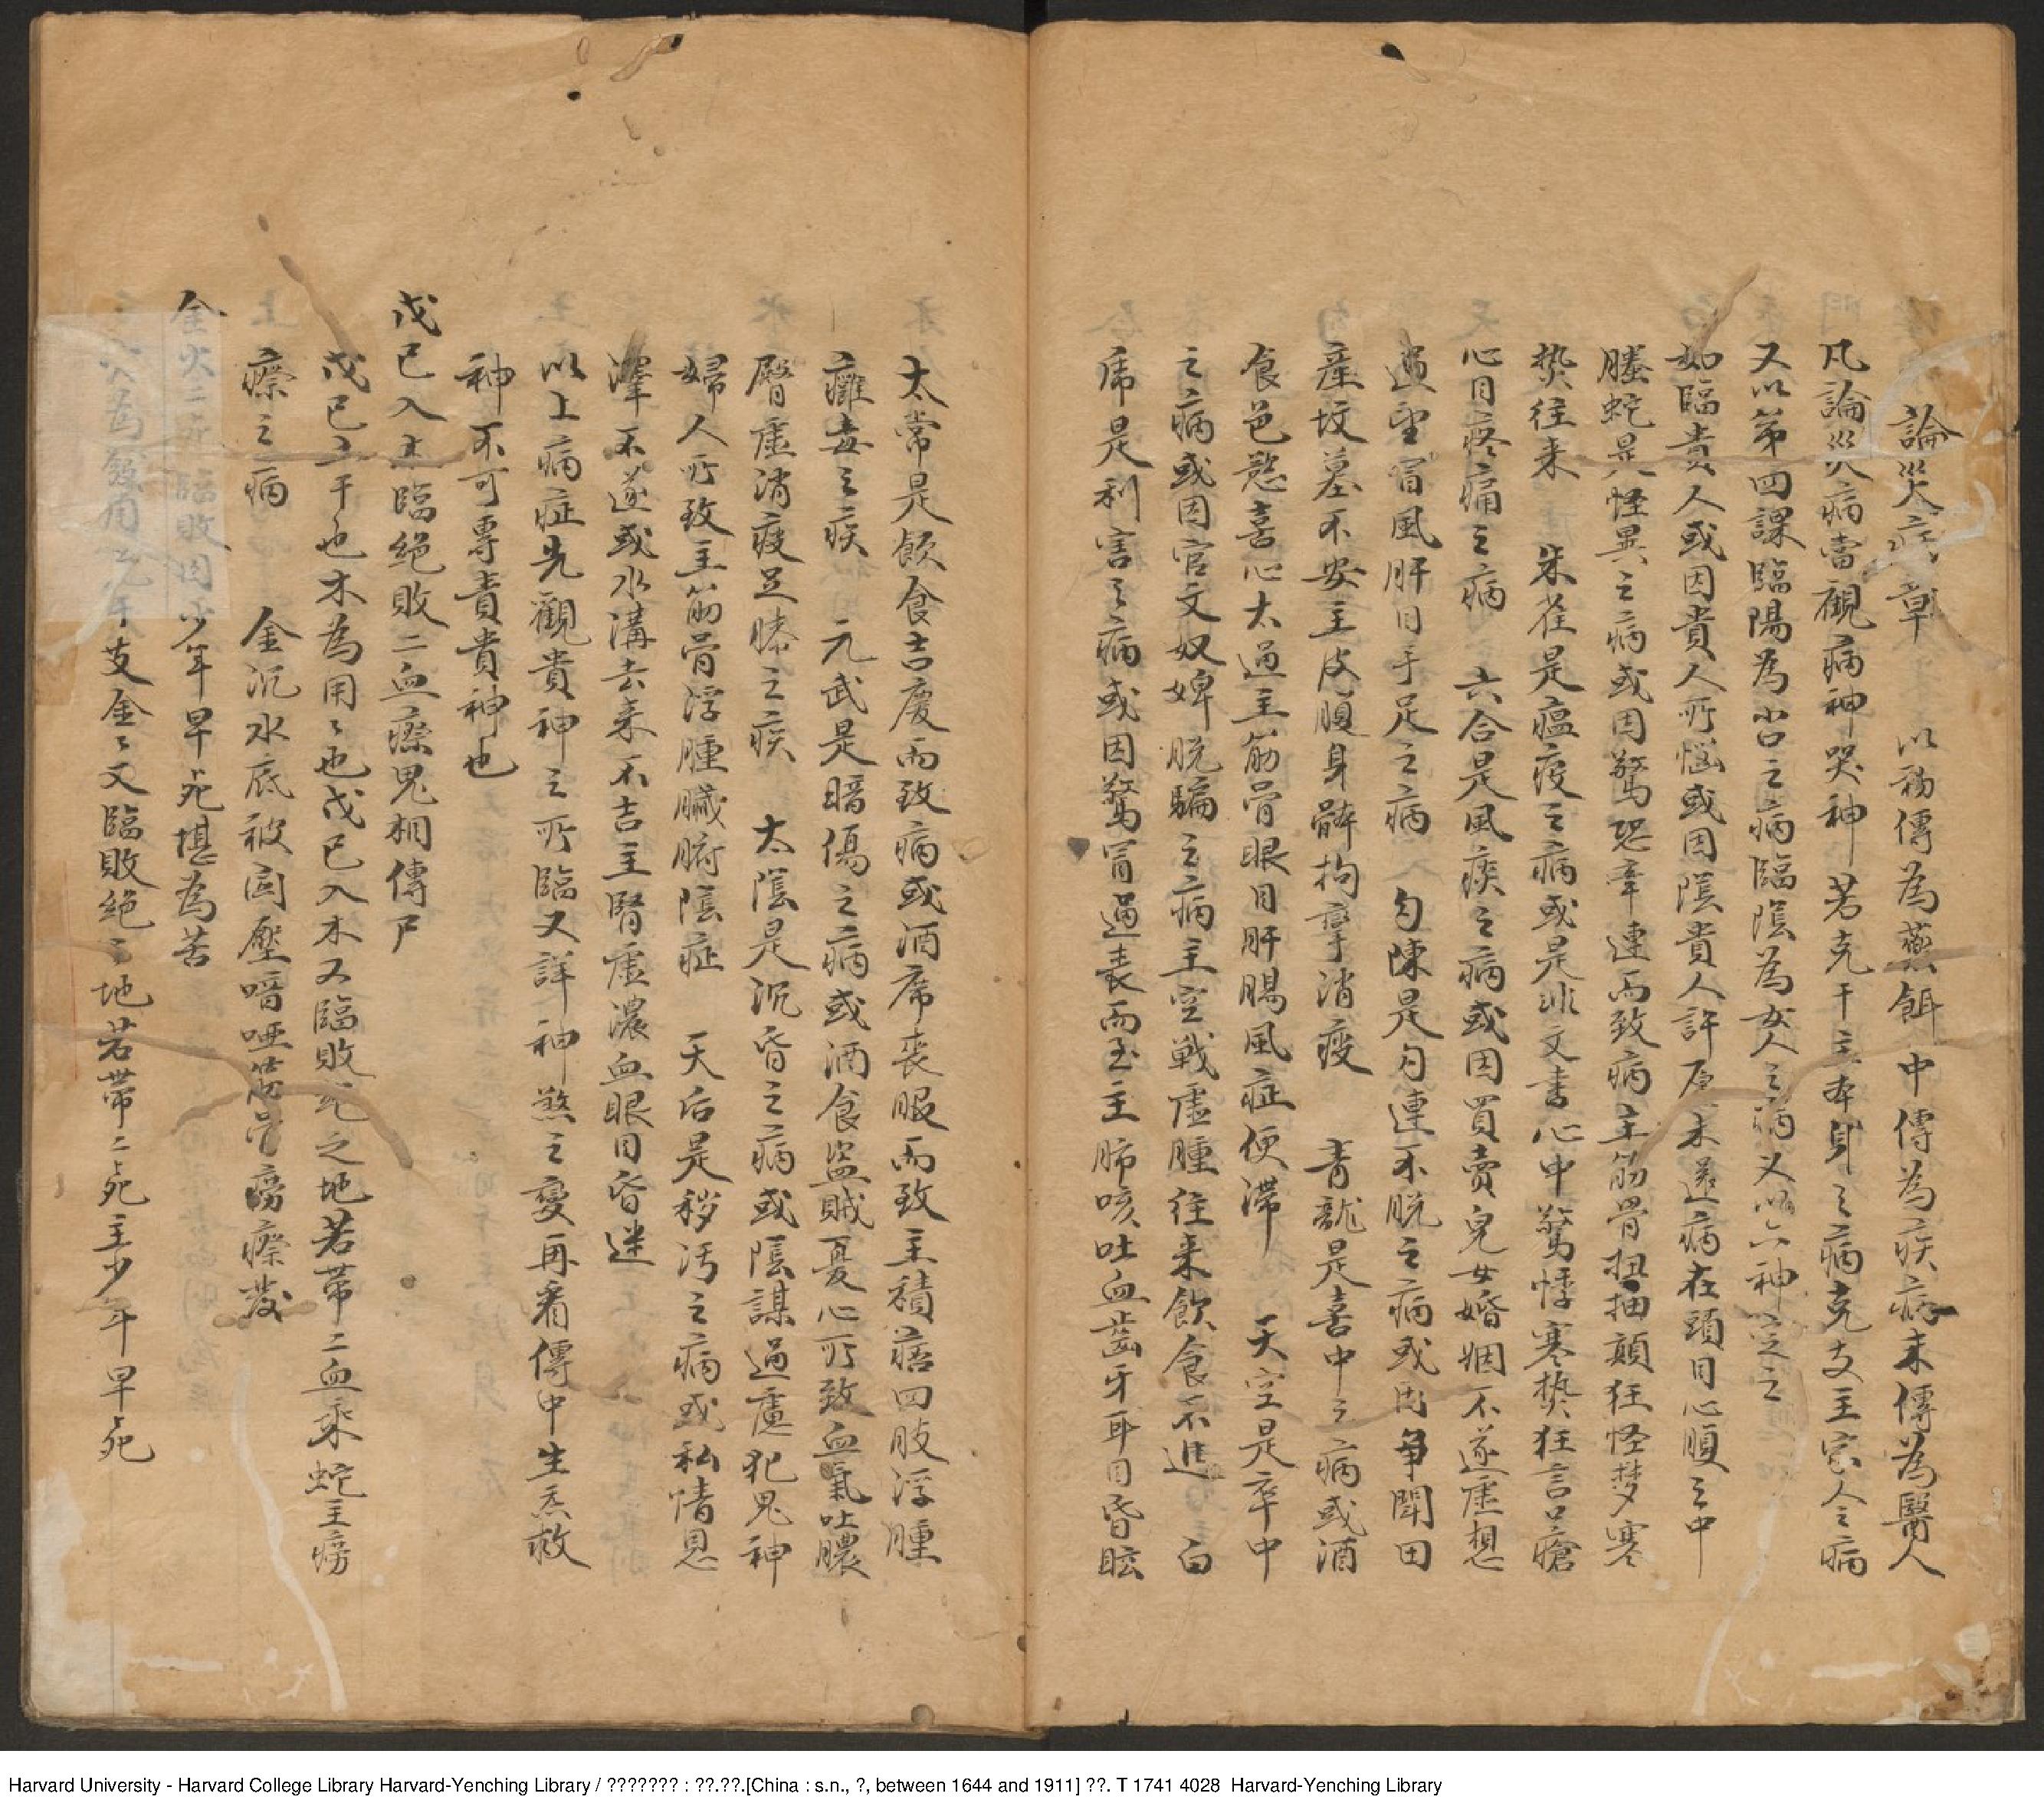 論災病章　以初傳為藥餌中傳為疾病末傳為醫人
凡論災病當觀病神哭神　若克干主本身之病克支主家人之病
又以第四課臨陽為占之病臨陰為女人之病又以六神定之
如臨貴人或因貴人所惱或因陰貴人許愿未還病在頭目心順之中
螣蛇是怪異之病或因驚恐牽連而致病主筋骨扭抽顛狂怪梦寒
熱往来　朱雀是瘟疫之病或是非文書心中驚悸寒熱狂言口瘡
心目疼痛之病　六合是風疾之病或因買賣兒女婚姻不遂虛想
過望冒風肝目手足之病　勾陳是勾連不脱之病或因爭鬪田
產坟墓不安主皮腹身體拘攣消瘦　青龍是喜中之病或酒
食色慾喜心太過主筋骨眼目肝腸風症便滯　天空是卒中
之病或因官文奴婢脱騙之病主空戰虛腫往来飲食不進　白
虎是利害之病或因驚冒過喪而至主肺咳吐血齒牙耳目昏眩
太常是飲食吉慶而致病或酒席喪服而致主積痞四肢浮腫
癰毒之疾　元武是暗傷之病或酒食盜賊憂心所致血氣吐膿
腎虛消瘦足膝之疾　太陰是沉昏之病或陰謀過慮犯鬼神
婦人所致主筋骨浮腫臟腑陰症　天后是秽污之病或私情恩
澤不遂或水溝去来不吉主腎虛濃血眼目昏迷
以上病症先觀貴神之所臨又詳神煞之变再看傳中生炁救
神不可專責貴神也
戊己入木臨絕敗二血瘵鬼相傳尸
戊己土干也木為用ミ也戊己入木又臨敗絕之地若帶二血乘蛇主癆
瘵之病　金沉水底被囚壓喑啞筋骨癆瘵發
金火二所臨敗因少年早死堪為苦
火為鬼用先干支金ミ又臨敗絕之地若帶二死主少年早死
Harvard University - Harvard College Library Harvard-Yenching Library / ??????? : ??.??.[China : s.n., ?, between 1644 and 1911] ??. T 1741 4028 Harvard-Yenching Library